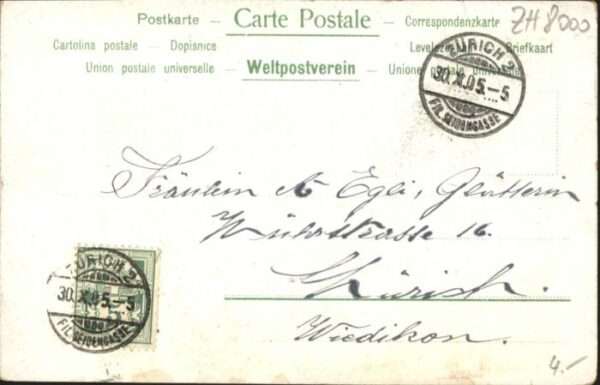 Postkarte — Carte Postale — Correspondenzkarte
ZH 8000
Cartolina postale — Dopisnice Levelez Briefkaart
Union postale universelle — Weltpostverein — Union postale universelle
ZÜRICH 2
30.XI.05.–5
FIL. SEIDENGASSE
Fräulein A Egli, Glätterin
Wuhrstrasse 16.
Zürich.
Wiedikon.
ZÜRICH 2
30.XI.05.–5
FIL. SEIDENGASSE
4.–